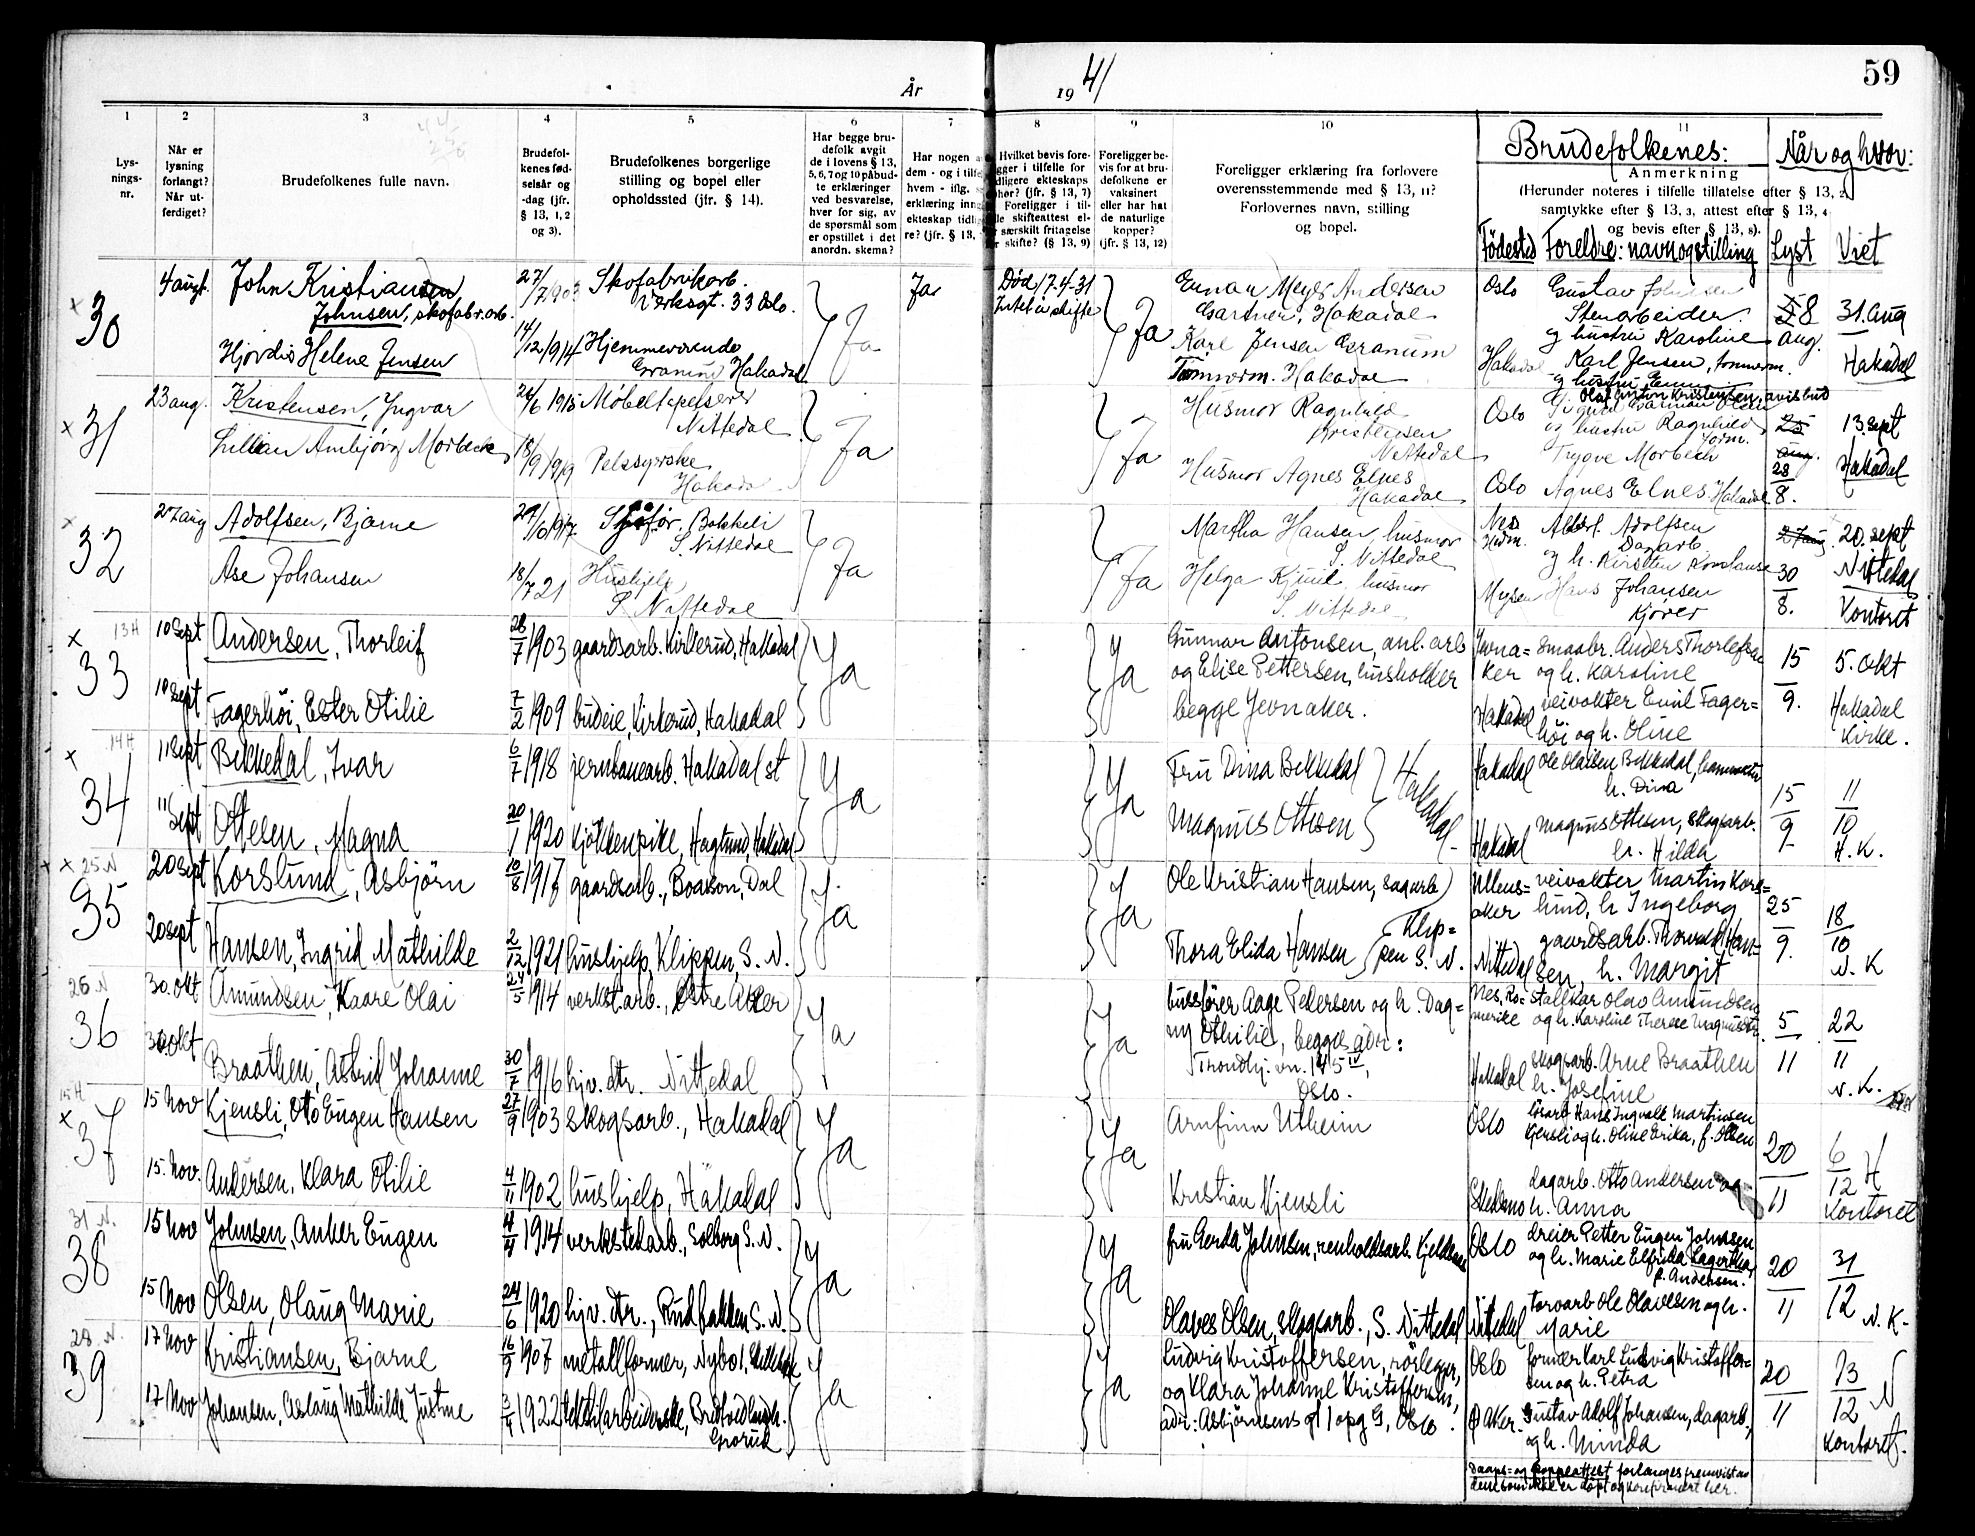 59
År
19 41
1
2
3
4
5
6
7
8
9
10
11
Lys-
nings-
nr.
Når er
lysning
forlangt?
Når ut-
ferdiget?
Brudefolkenes fulle navn.
Brudefol-
kenes fød-
selsår og
-dag (jfr.
§ 13, 1, 2
og 3).
Brudefolkenes borgerlige
stilling og bopel eller
opholdssted (jfr. § 14).
Har begge bru-
defolk avgit
de i lovens § 13,
5, 6, 7 og 10 påbud-
te erklæringer
ved besvarelse,
hver for sig, av
de spørsmål som
er opstillet i det
anordn. skema?
Har nogen a
dem - og i tilfe
hvem - iflg.
erklæring inng
ekteskap tidl
re? (jfr. § 13,
Hvilket bevis fore-
gger i tilfelle for
dligere ekteskaps
phør? (jfr. § 13, 7)
Foreligger i til-
le skifteattest el-
særskilt fritagelse
skifte? (§ 13, 9)
Foreligger be-
vis for at bru-
defolkene er
vaksinert
eller har hat
de naturlige
kopper?
(jfr. § 13, 12)
Foreligger erklæring fra forlovere
overensstemmende med § 13, 11?
Forlovernes navn, stilling
og bopel.
Brudefolkenes:
Anmerkning
(Herunder noteres i tilfelle tillatelse efter § 13, 2
samtykke efter § 13, 3, attest efter § 13, 4
og bevis efter § 13, 8).
Når og hvor:
Fødested Foreldre: navn og stilling Lyst Viet
30
4 augt.
John Kristiansen
Johnsen, skofabr.arb.
27/7 1903
Skofabrikarb.
Verksgt. 33 Oslo.
Ja
Ja
Død 17.4-31
Intet å skifte
Ja
Einar Meyer Andersen
Gartner, Hakadal
Oslo
Gustav Johnsen
Stenarbeider
og hustru Karoline
28
aug.
31. aug
Hakadal
Hjørdis Helene Jensen
14/12 1914
Hjemmeværende
Granum Hakadal
Karl Jensen Granum
Tømmerm. Hakadal
Hakadal
Karl Jensen, tømmerm.
og hustru Emma
31
23 aug.
Kristensen, Ingvar
26/6 1915
Møbeltapetserer
Nittedal
Ja
Ja
Husmor Ragnhild
Kristensen
Nittedal
Oslo
Olaf Anton Kristensen, avisbud
og hustru Ragnhild
25
aug.
28
8.
13. sept
Hakadal
Lillian Ambjørg Morbech
18/9 1919
Pelssyerske
Hakadal
Husmor Agnes Elnes
Hakadal
Oslo
Trygve Morbech
Agnes Elnes. Hakadal
32
27 aug
Adolfsen, Bjarne
29/6 1917
Sjåfør. Bakkeli
S. Nittedal
Ja
Ja
Martha Hansen, husmor
S. Nittedal
Nes
Hedm.
Albert Adolfsen
Dagarb.
og h. Kirsten Konstanse
27 aug.
30
8.
20. sept
Nittedal
Kontoret
Åse Johansen
18/7 21
Hushjelp
S. Nittedal
Helga Kjuil, husmor
S. Nittedal
Mysen
Hans Johansen
Kjører
13 H
33
10 Sept
Andersen, Thorleif
28/7 1903
gaardsarb. Kirkerud, Hakadal
Ja
Ja
Gunnar Antonsen, anl. arb
og Elise Pettersen, husholder
begge Jevnaker.
Jevna=
ker
smaabr. Anders Thorlefsen
og h. Karoline
15
9.
5. okt
Hakadal
Kirke.
10 Sept
Fagerhöi, Ester Otilie
7/2 1909
budeie, Kirkerud, Hakadal
Hakadal
veivokter Emil Fager=
höi og h. Oline
14 H
34
11 Sept
Bekkedal, Ivar
6/7 1918
jernbanearb. Hakadal st
Ja
Ja
Fru Dina Bekkedal
Hakadal
Hakadal
Ole Olausen Bekkedal, banevokter
h. Dina
15
9
11
10
H. K.
11 Sept
Ottesen, Magna
20/1 1920
kjökkenpike, Haglund, Hakadal
Magnus Ottesen
Hakadal
Magnus Ottesen, skogsarb.
h. Hilda
25 N
35
20 Sept
Korslund, Asbjörn
10/8 1917
gaardsarb., Boasson, Dal
Ja
Ja
Ole Kristian Hansen, sagarb
Ullens=
aker
veivokter Martin Kors=
lund, h Ingeborg
25
9.
18
10
N. K
20 Sept
Hansen, Ingrid Mathilde
2/12 1921
hushjelp, Klippen, S. N.
Thora Elida Hansen
Klip=
pen S. N.
Nittedal
gaardsarb. Thorvald Han=
sen, h. Margit
26 N
36
30. okt
Amundsen, Kaare Olai
24/5 1914
verkst.arb., Östre Aker
Ja
Ja
bussfører Aage Pedersen og h. Dag=
ny Othilie, begges adr:
Trondhj. vn. 145 IV,
Oslo.
Nes, Ro=
merike
stallkar Olav Amundsen
og h. Karoline Therese Magnusdtr.
5
11
22
11
N. K.
30. okt
Braathen, Astrid Johanne
30/7 1916
hjv. dtr. Nittedal
Hakadal
skogsarb. Arne Braathen
h. Josefine
15 H
37
15 Nov
Kjensli, Otto Eugen Hansen
27/9 1903
skogsarb., Hakadal
Ja
Ja
Arnfinn Utheim
Oslo
Hans Ingvald Martinsen
Kjensli og h. Oline Erika, f. Olsen
20
11
6
12 H
Kontoret
15. Nov.
Andersen, Klara Otilie
4/11 1902
hushjelp, Hakadal
Kristian Kjensli
Skedsmo
dagarb. Otto Andersen og
h. Anna
31 N.
38
15 Nov
Johnsen, Anker Eugen
4/4 1914
verkstedarb., Solborg S. N.
Ja
Ja
fru Gerda Johnsen, renholdsarb.
Oslo
dreier Petter Eugen Johnsen
og h. Marie Elfrida Lagertha,
f. Andersen.
20
11
31
12
N. K.
15 Nov
Olsen, Olaug Marie
24/6 1920
hjv. dtr., Rudbakken S. N.
Olaves Olsen, skogsarb., S. Nittedal
Nittedal
torvarb Ole Olavesen og h.
Marie
28. N.
39
17 Nov
Kristiansen, Bjarne
16/9 1907
metallformer, Nybo 1,
Ja
Ja
Ludvig Kristoffersen, rørlegger,
og Klara Johanne Kristoffersen,
adr: Asbjörnsens gt 1 opg G, Oslo
Oslo
former Karl Ludvig Kristoffer=
sen og h. Petra
20
11
13
12 N
Kontoret.
17 Nov
Johansen, Aslaug Mathilde Justine
1922
tekstilarbeiderske, Bredtvedt
Grorud
Ø Aker.
Gustav Adolf Johansen, dagarb.,
og h. Minda
Daaps= og koppeattest forlanges fremvist av
dem som ikke er döpt og konfirmert her.